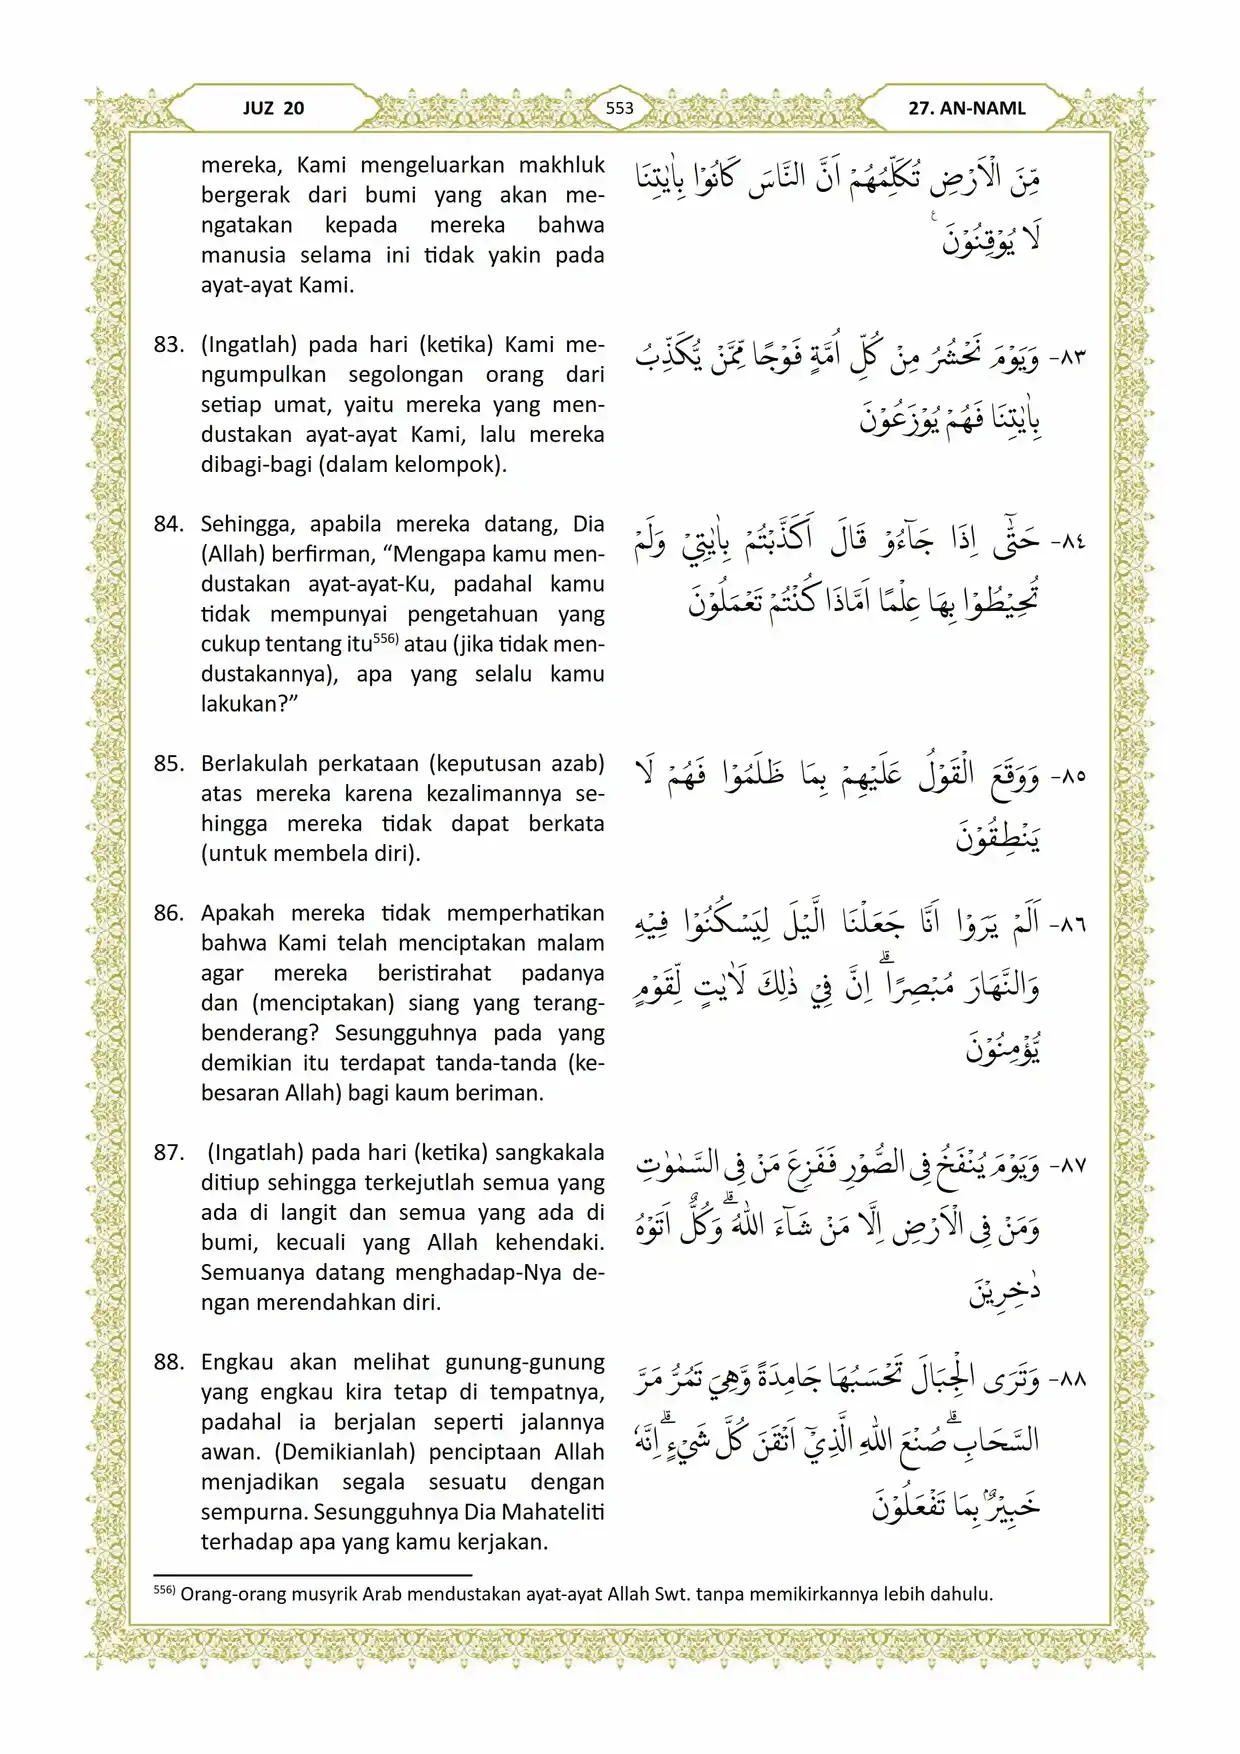 JUZ 20
553
27. AN-NAML
mereka, Kami mengeluarkan makhluk
bergerak dari bumi yang akan me-
ngatakan kepada mereka bahwa
manusia selama ini tidak yakin pada
ayat-ayat Kami.
مِّنَ الْاَرْضِ تُكَلِّمُهُمْ اَنَّ النَّاسَ كَانُوْا بِاٰيٰتِنَا
لَا يُوْقِنُوْنَ ࣖ
83. (Ingatlah) pada hari (ketika) Kami me-
ngumpulkan segolongan orang dari
setiap umat, yaitu mereka yang men-
dustakan ayat-ayat Kami, lalu mereka
dibagi-bagi (dalam kelompok).
٨٣- وَيَوْمَ نَحْشُرُ مِنْ كُلِّ اُمَّةٍ فَوْجًا مِّمَّنْ يُّكَذِّبُ
بِاٰيٰتِنَا فَهُمْ يُوْزَعُوْنَ
84. Sehingga, apabila mereka datang, Dia
(Allah) berfirman, “Mengapa kamu men-
dustakan ayat-ayat-Ku, padahal kamu
tidak mempunyai pengetahuan yang
cukup tentang itu⁵⁵⁶⁾ atau (jika tidak men-
dustakannya), apa yang selalu kamu
lakukan?”
٨٤- حَتّٰٓى اِذَا جَاۤءُوْ قَالَ اَكَذَّبْتُمْ بِاٰيٰتِيْ وَلَمْ
تُحِيْطُوْا بِهَا عِلْمًا اَمَّاذَا كُنْتُمْ تَعْمَلُوْنَ
85. Berlakulah perkataan (keputusan azab)
atas mereka karena kezalimannya se-
hingga mereka tidak dapat berkata
(untuk membela diri).
٨٥- وَوَقَعَ الْقَوْلُ عَلَيْهِمْ بِمَا ظَلَمُوْا فَهُمْ لَا
يَنْطِقُوْنَ
86. Apakah mereka tidak memperhatikan
bahwa Kami telah menciptakan malam
agar mereka beristirahat padanya
dan (menciptakan) siang yang terang-
benderang? Sesungguhnya pada yang
demikian itu terdapat tanda-tanda (ke-
besaran Allah) bagi kaum beriman.
٨٦- اَلَمْ يَرَوْا اَنَّا جَعَلْنَا الَّيْلَ لِيَسْكُنُوْا فِيْهِ
وَالنَّهَارَ مُبْصِرًاۗ اِنَّ فِيْ ذٰلِكَ لَاٰيٰتٍ لِّقَوْمٍ
يُّؤْمِنُوْنَ
87. (Ingatlah) pada hari (ketika) sangkakala
ditiup sehingga terkejutlah semua yang
ada di langit dan semua yang ada di
bumi, kecuali yang Allah kehendaki.
Semuanya datang menghadap-Nya de-
ngan merendahkan diri.
٨٧- وَيَوْمَ يُنْفَخُ فِى الصُّوْرِ فَفَزِعَ مَنْ فِى السَّمٰوٰتِ
وَمَنْ فِى الْاَرْضِ اِلَّا مَنْ شَاۤءَ اللّٰهُ ۗوَكُلٌّ اَتَوْهُ
دٰخِرِيْنَ
88. Engkau akan melihat gunung-gunung
yang engkau kira tetap di tempatnya,
padahal ia berjalan seperti jalannya
awan. (Demikianlah) penciptaan Allah
menjadikan segala sesuatu dengan
sempurna. Sesungguhnya Dia Mahateliti
terhadap apa yang kamu kerjakan.
٨٨- وَتَرَى الْجِبَالَ تَحْسَبُهَا جَامِدَةً وَّهِيَ تَمُرُّ مَرَّ
السَّحَابِۗ صُنْعَ اللّٰهِ الَّذِيْٓ اَتْقَنَ كُلَّ شَيْءٍۗ اِنَّهٗ
خَبِيْرٌۢ بِمَا تَفْعَلُوْنَ
⁵⁵⁶⁾ Orang-orang musyrik Arab mendustakan ayat-ayat Allah Swt. tanpa memikirkannya lebih dahulu.